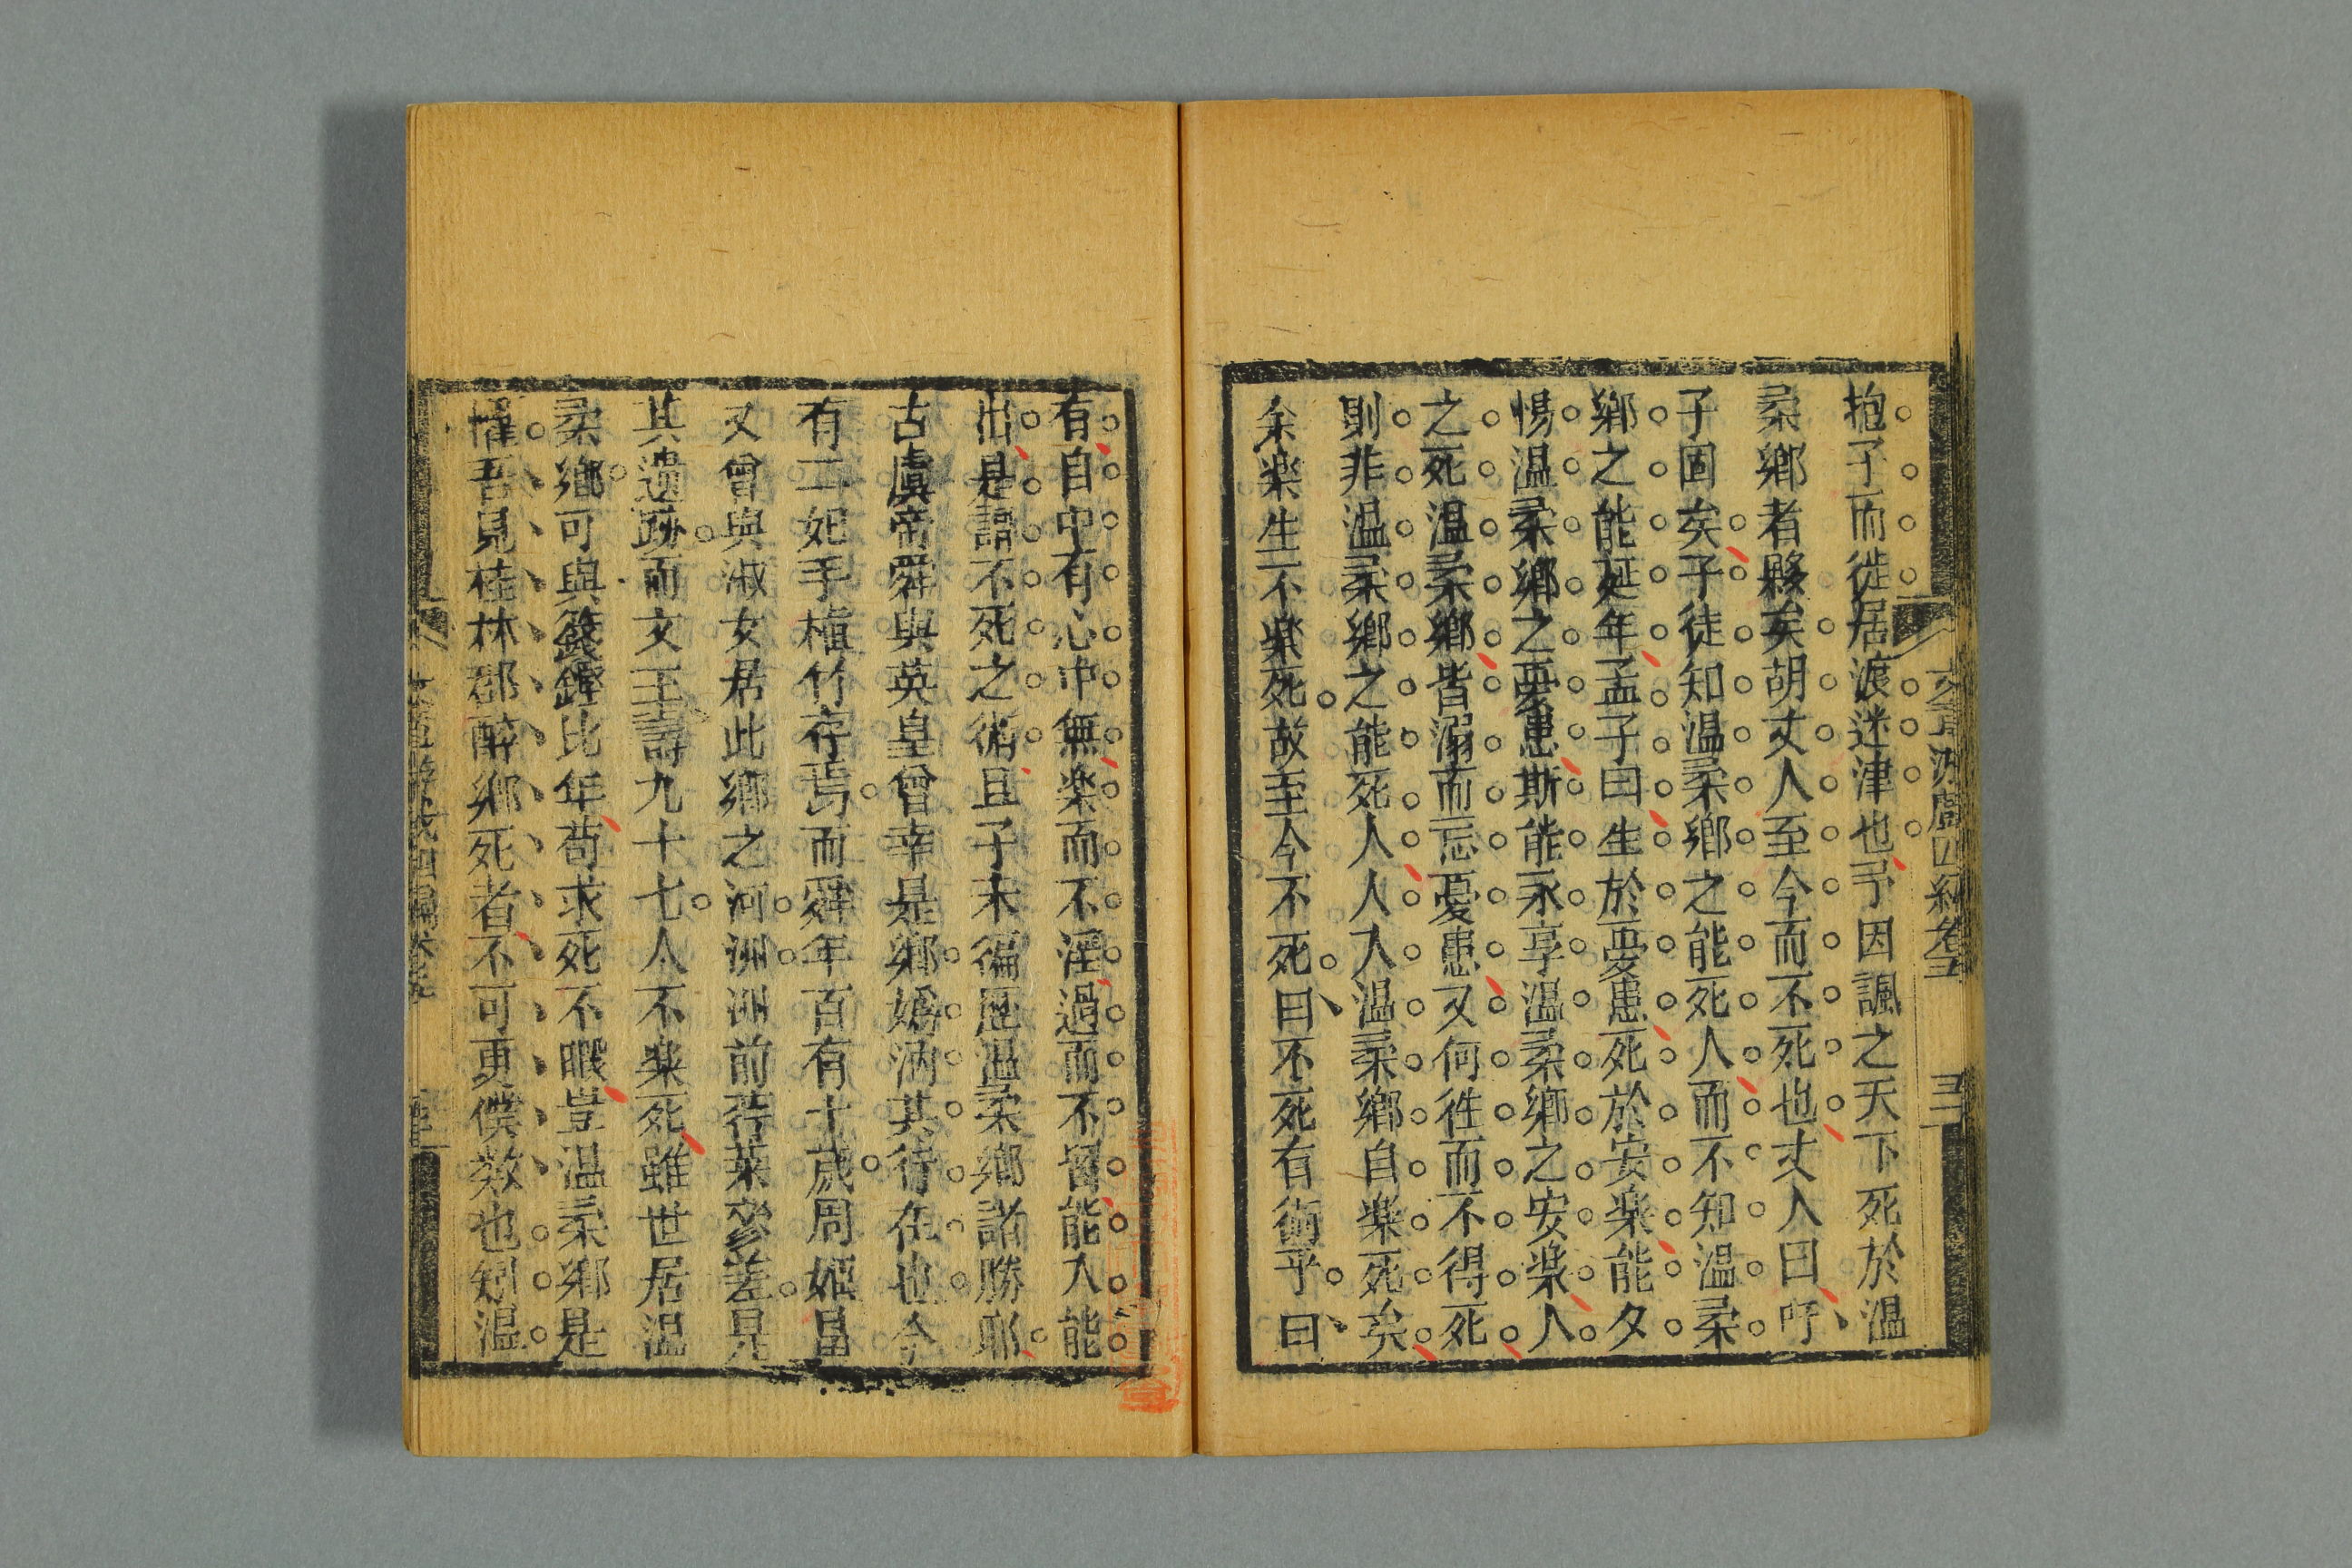 抱子而徙居渡迷津也予因諷之天下死於温
柔鄉者夥矣胡丈人至今而不死也丈人曰吁
子固矣子徒知温柔鄉之能死人而不知温柔
鄉之能延年孟子曰生於憂患死於安楽能夕
惕温柔鄉之憂患斯能永享温柔鄉之安楽人
之死温柔鄉皆溺而忘憂患又何徃而不得死
則非温柔鄉之能死人人入温柔鄉自楽死矣
余楽生不楽死故至今不死曰不死有術乎曰
有自中有心中無楽而不淫過而不留能入能
出是謂不死之術且子未徧歷温柔鄉諸勝耶
古虞帝舜與英皇曾幸是鄉媯汭其行在也今
有二妃手植竹存焉而舜年百有十歲周姬昌
又曾與淑女居此鄉之河洲洲前荇菜參差見
其遺跡而文王壽九十七人不楽死雖世居温
柔鄉可與籛鏗比年苟求死不暇豈温柔鄉是
懼吾見桂林郡醉鄉死者不可更僕数也刟温